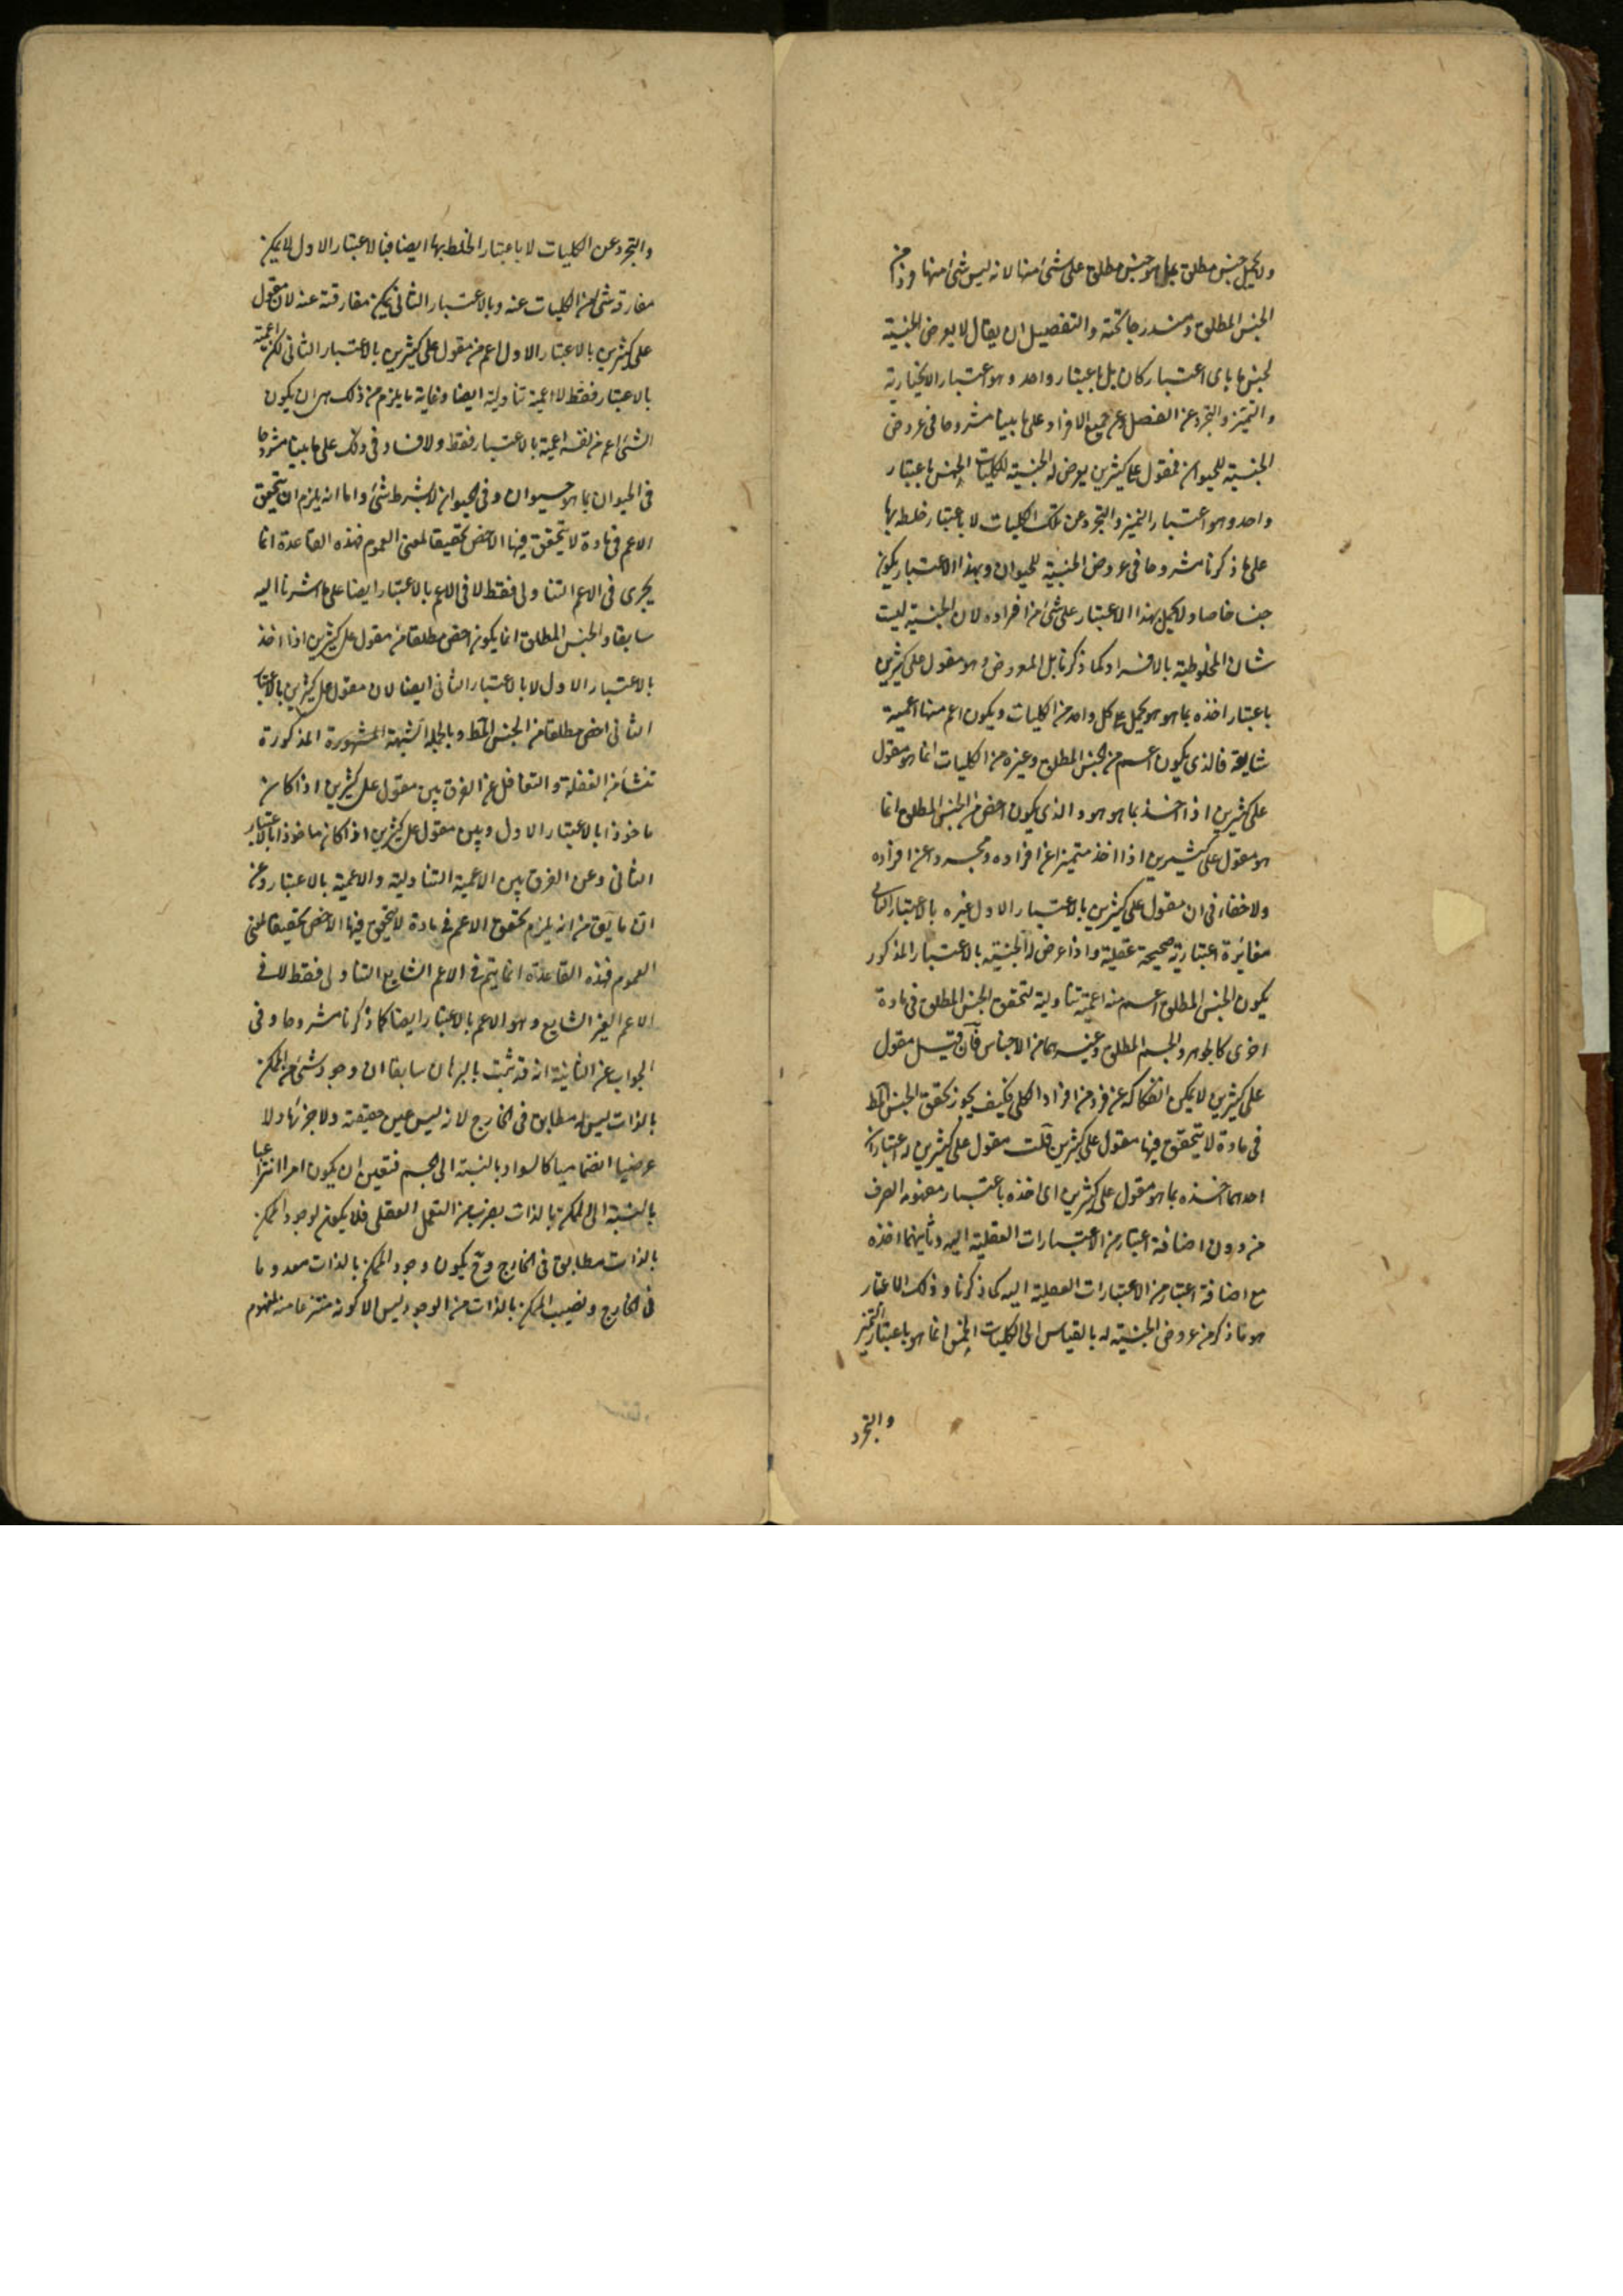 ولا يحمل جنس مطلق بما هو جنس مطلق على شئ منها لانه ليس شئ منها فردا من
الجنس المطلق ومندرجا تحته والتفصيل ان يقال لا يعرض الجنسية
لجنس ما باى اعتبار كان بل باعتبار واحد وهو اعتبار
والتميز والتجرد عن الفصل وعن جميع الافراد على ما بينا مشروحا فى عروض
الجنسية للحيوان فمقول على كثيرين يعرض له الجنسية للكليات الخمس باعتبار
واحد وهو اعتبار التميز والتجرد عن تلك الكليات لا باعتبار خلطه بها
على ما ذكرنا مشروحا فى عروض الجنسية للحيوان وبهذا الاعتبار يكون
جنسا خاصا ولا يحمل بهذا الاعتبار على شئ من افراده لان الجنسية ليست
شان المخلوطية بالافراد كما ذكرنا بل المعروض وهو مقول على كثيرين
باعتبار اخذه بما هو هو يحمل على كل واحد من الكليات ويكون اعم منها اعمية
شايعة فالذى يكون اعم من الجنس المطلق وغيره من الكليات انما هو مقول
على كثيرين اذا اخذ بما هو هو والذى يكون اخص من الجنس المطلق انما
هو مقول على كثيرين اذا اخذ متميزا عن افراده ومجردا عن افراده
ولا خفاء فى ان مقول على كثيرين بالاعتبار الاول غيره بالاعتبار الثانى
مغايرة اعتبارية صحيحة عقلية واذا عرض له الجنسية بالاعتبار المذكور
يكون الجنس المطلق اعم منه اعمية تناولية لتحقق الجنس المطلق فى مادة
اخرى كالجوهر والجسم المطلق وغيرهما من الاجناس فان قيل مقول
على كثيرين لا يمكن انفكاكه عن فرد من افراد الكلى فكيف يجوز تحقق الجنس المط
فى مادة لا يتحقق فيها مقول على كثيرين قلت مقول على كثيرين له اعتباران
احدهما اخذه بما هو مقول على كثيرين اى اخذه باعتبار مفهومه الصرف
من دون اضافة اعتبار من الاعتبارات العقلية اليه وثانيهما اخذه
مع اضافة اعتبار من الاعتبارات العقلية اليه كما ذكرنا وذلك الاعتبار
هو ما ذكر من عروض الجنسية له بالقياس الى الكليات الخمس انما هو باعتبار التميز
والتجرد
والتجرد عن الكليات لا باعتبار الخلط بها ايضا فبالاعتبار الاول لا يمكن
مفارقة شئ من الكليات عنه وبالاعتبار الثانى يمكن مفارقته عنه لان مقول
على كثيرين بالاعتبار الاول اعم من مقول على كثيرين بالاعتبار الثانى لكن اعمية
بالاعتبار فقط لا اعمية تناولية ايضا وغاية ما يلزم من ذلك هى ان يكون
الشئ اعم من نفسه اعمية بالاعتبار فقط ولا فساد فى ذلك على ما بينا مشروحا
فى الحيوان بما هو حيوان وفى الحيوان لا بشرط شئ واما انه يلزم ان يتحقق
الاعم فى مادة لا يتحقق فيها الاخص تحقيقا لمعنى العموم فهذه القاعدة انما
يجرى فى الاعم التناولى فقط لا فى الاعم بالاعتبار ايضا على ما اشرنا اليه
سابقا والجنس المطلق انما يكون اخص مطلقا من مقول على كثيرين اذا اخذ
بالاعتبار الاول لا بالاعتبار الثانى ايضا لان مقول على كثيرين بالاعتبار
الثانى اخص مطلقا من الجنس المط وبالجملة الشبهة المشهورة المذكورة
تنشأ من الغفلة والتغافل عن الفرق بين مقول على كثيرين اذا كان
ماخوذا بالاعتبار الاول وبين مقول على كثيرين اذا كان ماخوذا بالاعتبار
الثانى وعن الفرق بين الاعمية التناولية والاعمية بالاعتبار وعن
ان ما يق من انه يلزم تحقق الاعم فى مادة لا يتحقق فيها الاخص تحقيقا لمعنى
العموم فهذه القاعدة انما يتم فى الاعم الشايع التناولى فقط لا فى
الاعم الغير الشايع وهو الاعم بالاعتبار ايضا كما ذكرنا مشروحا وفى
الجواب عن الثانية انه قد ثبت بالبرهان سابقا ان وجود شئ من الممكن
بالذات ليس له مطابق فى الخارج لانه ليس عين حقيقته ولا جزئها ولا
عرضيا انضماميا كالسواد بالنسبة الى الجسم فتعين ان يكون امرا انتزاعيا
بالنسبة الى الممكن بالذات بضرب من التعمل العقلى فلا يكون لوجود الممكن
بالذات مطابق فى الخارج وح يكون وجود الممكن بالذات معدوما
فى الخارج ونصيب الممكن بالذات من الوجود ليس الا كونه منتزعا منه لمفهوم